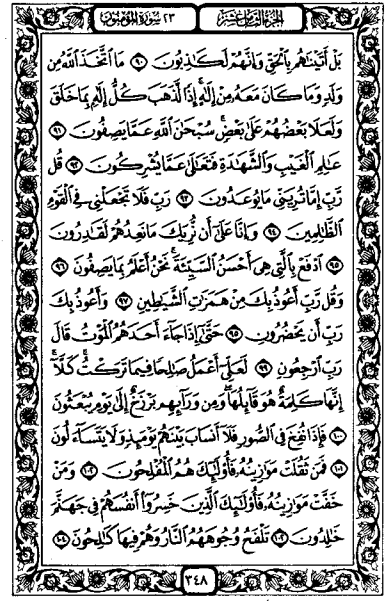 الجزء الثامن عشر
٢٣ سورة المؤمنون
بَلْ أَتَيْنَٰهُم بِٱلْحَقِّ وَإِنَّهُمْ لَكَٰذِبُونَ ٩٠ مَا ٱتَّخَذَ ٱللَّهُ مِن
وَلَدٍ وَمَا كَانَ مَعَهُۥ مِنْ إِلَٰهٍ إِذًا لَّذَهَبَ كُلُّ إِلَٰهٍ بِمَا خَلَقَ
وَلَعَلَا بَعْضُهُمْ عَلَىٰ بَعْضٍ سُبْحَٰنَ ٱللَّهِ عَمَّا يَصِفُونَ ٩١
عَٰلِمِ ٱلْغَيْبِ وَٱلشَّهَٰدَةِ فَتَعَٰلَىٰ عَمَّا يُشْرِكُونَ ٩٢ قُل
رَّبِّ إِمَّا تُرِيَنِّي مَا يُوعَدُونَ ٩٣ رَبِّ فَلَا تَجْعَلْنِي فِي ٱلْقَوْمِ
ٱلظَّٰلِمِينَ ٩٤ وَإِنَّا عَلَىٰ أَن نُّرِيَكَ مَا نَعِدُهُمْ لَقَٰدِرُونَ
٩٥ ٱدْفَعْ بِٱلَّتِي هِيَ أَحْسَنُ ٱلسَّيِّئَةَ نَحْنُ أَعْلَمُ بِمَا يَصِفُونَ ٩٦
وَقُل رَّبِّ أَعُوذُ بِكَ مِنْ هَمَزَٰتِ ٱلشَّيَٰطِينِ ٩٧ وَأَعُوذُ بِكَ
رَبِّ أَن يَحْضُرُونِ ٩٨ حَتَّىٰ إِذَا جَآءَ أَحَدَهُمُ ٱلْمَوْتُ قَالَ
رَبِّ ٱرْجِعُونِ ٩٩ لَعَلِّي أَعْمَلُ صَٰلِحًا فِيمَا تَرَكْتُ كَلَّآ
إِنَّهَا كَلِمَةٌ هُوَ قَآئِلُهَا وَمِن وَرَآئِهِم بَرْزَخٌ إِلَىٰ يَوْمِ يُبْعَثُونَ
١٠٠ فَإِذَا نُفِخَ فِي ٱلصُّورِ فَلَآ أَنسَابَ بَيْنَهُمْ يَوْمَئِذٍ وَلَا يَتَسَآءَلُونَ
١٠١ فَمَن ثَقُلَتْ مَوَٰزِينُهُۥ فَأُو۟لَٰٓئِكَ هُمُ ٱلْمُفْلِحُونَ ١٠٢ وَمَنْ
خَفَّتْ مَوَٰزِينُهُۥ فَأُو۟لَٰٓئِكَ ٱلَّذِينَ خَسِرُوٓا۟ أَنفُسَهُمْ فِي جَهَنَّمَ
خَٰلِدُونَ ١٠٣ تَلْفَحُ وُجُوهَهُمُ ٱلنَّارُ وَهُمْ فِيهَا كَٰلِحُونَ ١٠٤
٣٤٨